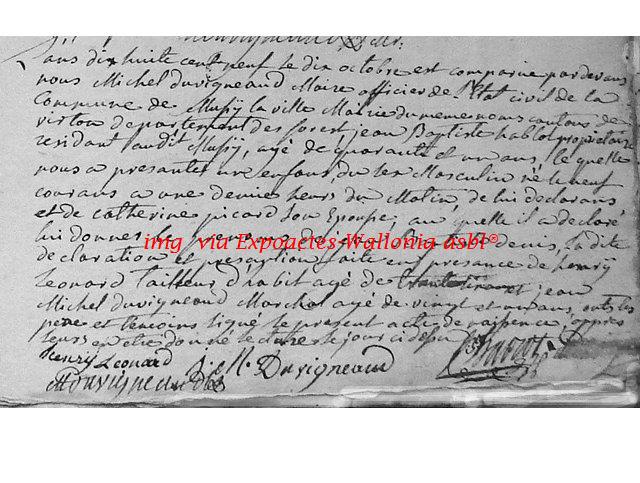 ans dix huite cent neuf le dix octobre est comparue par devans
nous Michel Duvigneaud Maire officier de l'Etat civil de la
Commune de Mussy la ville Mairie du meme nous cantons de
virton departement des forest jean Baptiste hablot proprietaire
residant audit Mussy, agé de quarante et un ans, le quelle
nous a presanter une enfans du sex Masculin né le neuf
courans a une demie heure du Matin, de lui declarans
et de catherine picard son Epouse; au quelle il a declaré
lui donner les prenoms de jean Baptiste denis, la dite
declaration et presantation faite en presance de henry
Leonard tailleur d'habit agé de jean
Michel Duvigneaud Marchal agé de vingt et un ans, onts les
pere et temoins signé le present acte de naissance appres
leurs en etre donner lecture le jour ci desu
henry Leonard J: M: Duvigneaud
MDuvigneaud
img via Expoactes-Wallonia asbl©